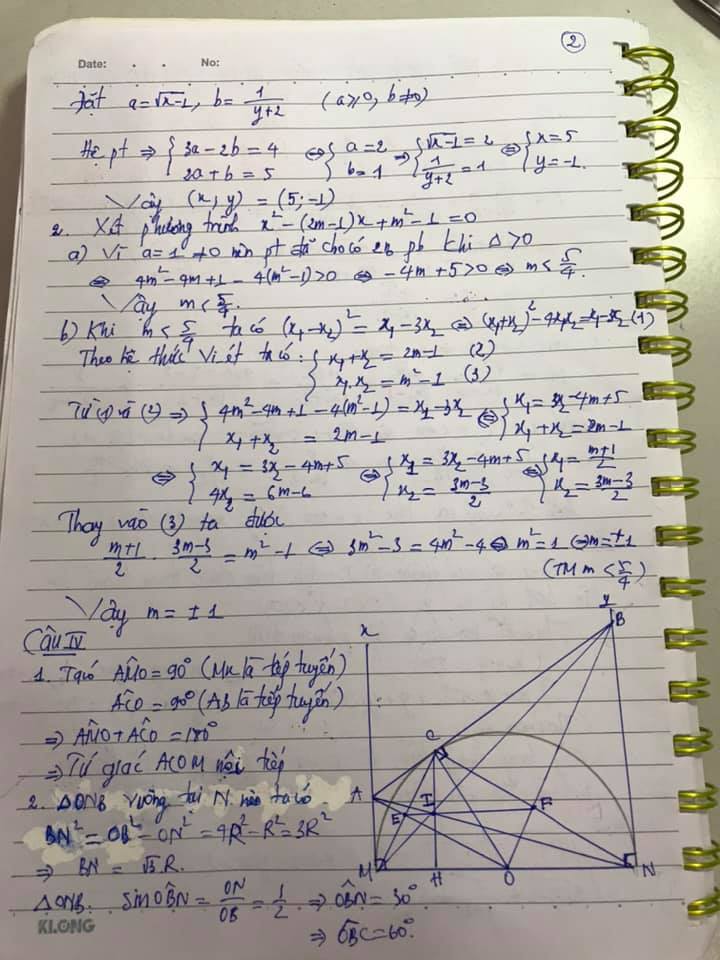 2
Date: . . No:
Đặt a = √(x-1), b = 1/(y+2) (a ≥ 0, b ≠ 0)
Hệ pt ⇒ { 3a - 2b = 4 ; 2a + b = 5 ⇔ { a = 2 ; b = 1 ⇒ { √(x-1) = 2 ; 1/(y+2) = 1 ⇔ { x = 5 ; y = -1.
Vậy (x; y) = (5; -1)
2. Xét phương trình x² - (2m-1)x + m² - 1 = 0
a) Vì a = 1 ≠ 0 nên pt đã cho có 2 pb khi Δ > 0
⇔ 4m² - 4m + 1 - 4(m² - 1) > 0 ⇔ -4m + 5 > 0 ⇔ m < 5/4.
Vậy m < 5/4.
b) Khi m < 5/4 ta có (x₁ - x₂)² = x₁ - 3x₂ ⇔ (x₁ + x₂)² - 4x₁x₂ = x₁ - 3x₂ (1)
Theo hệ thức Vi ét ta có: { x₁ + x₂ = 2m - 1 (2) ; x₁.x₂ = m² - 1 (3)
Từ (1) và (2) ⇒ { 4m² - 4m + 1 - 4(m² - 1) = x₁ - 3x₂ ; x₁ + x₂ = 2m - 1 ⇔ { x₁ = 3x₂ - 4m + 5 ; x₁ + x₂ = 2m - 1
⇔ { x₁ = 3x₂ - 4m + 5 ; 4x₂ = 6m - 6 ⇔ { x₁ = 3x₂ - 4m + 5 ; x₂ = (3m-3)/2 ⇔ { x₁ = (m+1)/2 ; x₂ = (3m-3)/2
Thay vào (3) ta được
(m+1)/2 . (3m-3)/2 = m² - 1 ⇔ 3m² - 3 = 4m² - 4 ⇔ m² = 1 ⇔ m = ±1
(TM m < 5/4)
Vậy m = ±1
Câu IV
1. Ta có AM̂O = 90° (Mx là tiếp tuyến)
AĈO = 90° (AB là tiếp tuyến)
⇒ AM̂O + AĈO = 180°
⇒ Tứ giác ACOM nội tiếp
2. ΔONB vuông tại N nên ta có
BN² = OB² - ON² = 4R² - R² = 3R²
⇒ BN = √3.R.
ΔONB. sin OB̂N = ON/OB = 1/2 ⇒ OB̂N = 30°
⇒ OB̂C = 60°
x
y
B
C
A
E
I
F
M
H
O
N
KLONG